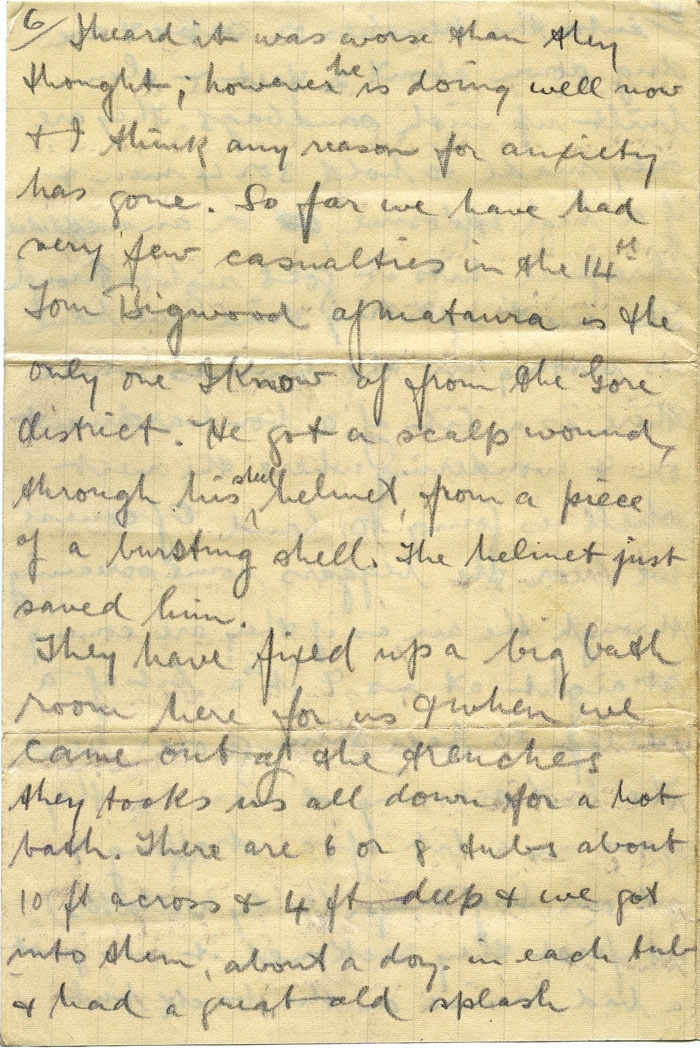 6/ I heard it was worse than they
thought; however he is doing well now
& I think any reason for anxiety
has gone. So far we have had
very few casualties in the 14th
Tom Bigwood of Mataura is the
only one I know of from the Gore
district. He got a scalp wound,
through his steel helmet, from a piece
of a bursting shell. The helmet just
saved him.
They have fixed up a big bath
room here for us & when we
came out of the trenches
they tooks us all down for a hot
bath. There are 6 or 8 tubs about
10 ft across & 4 ft deep & we got
into them, about a doz. in each tub
& had a great old splash